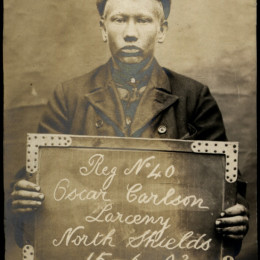 Reg Nº 40
Oscar Carlson
Larceny
North Shields